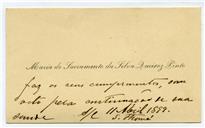 Maria do Sacramento da Silva Queiroz Pinto
faz os seus cumprimentos, com
pela continuação de sua
saude S/C 11 Abril 1889.
S. Thomé